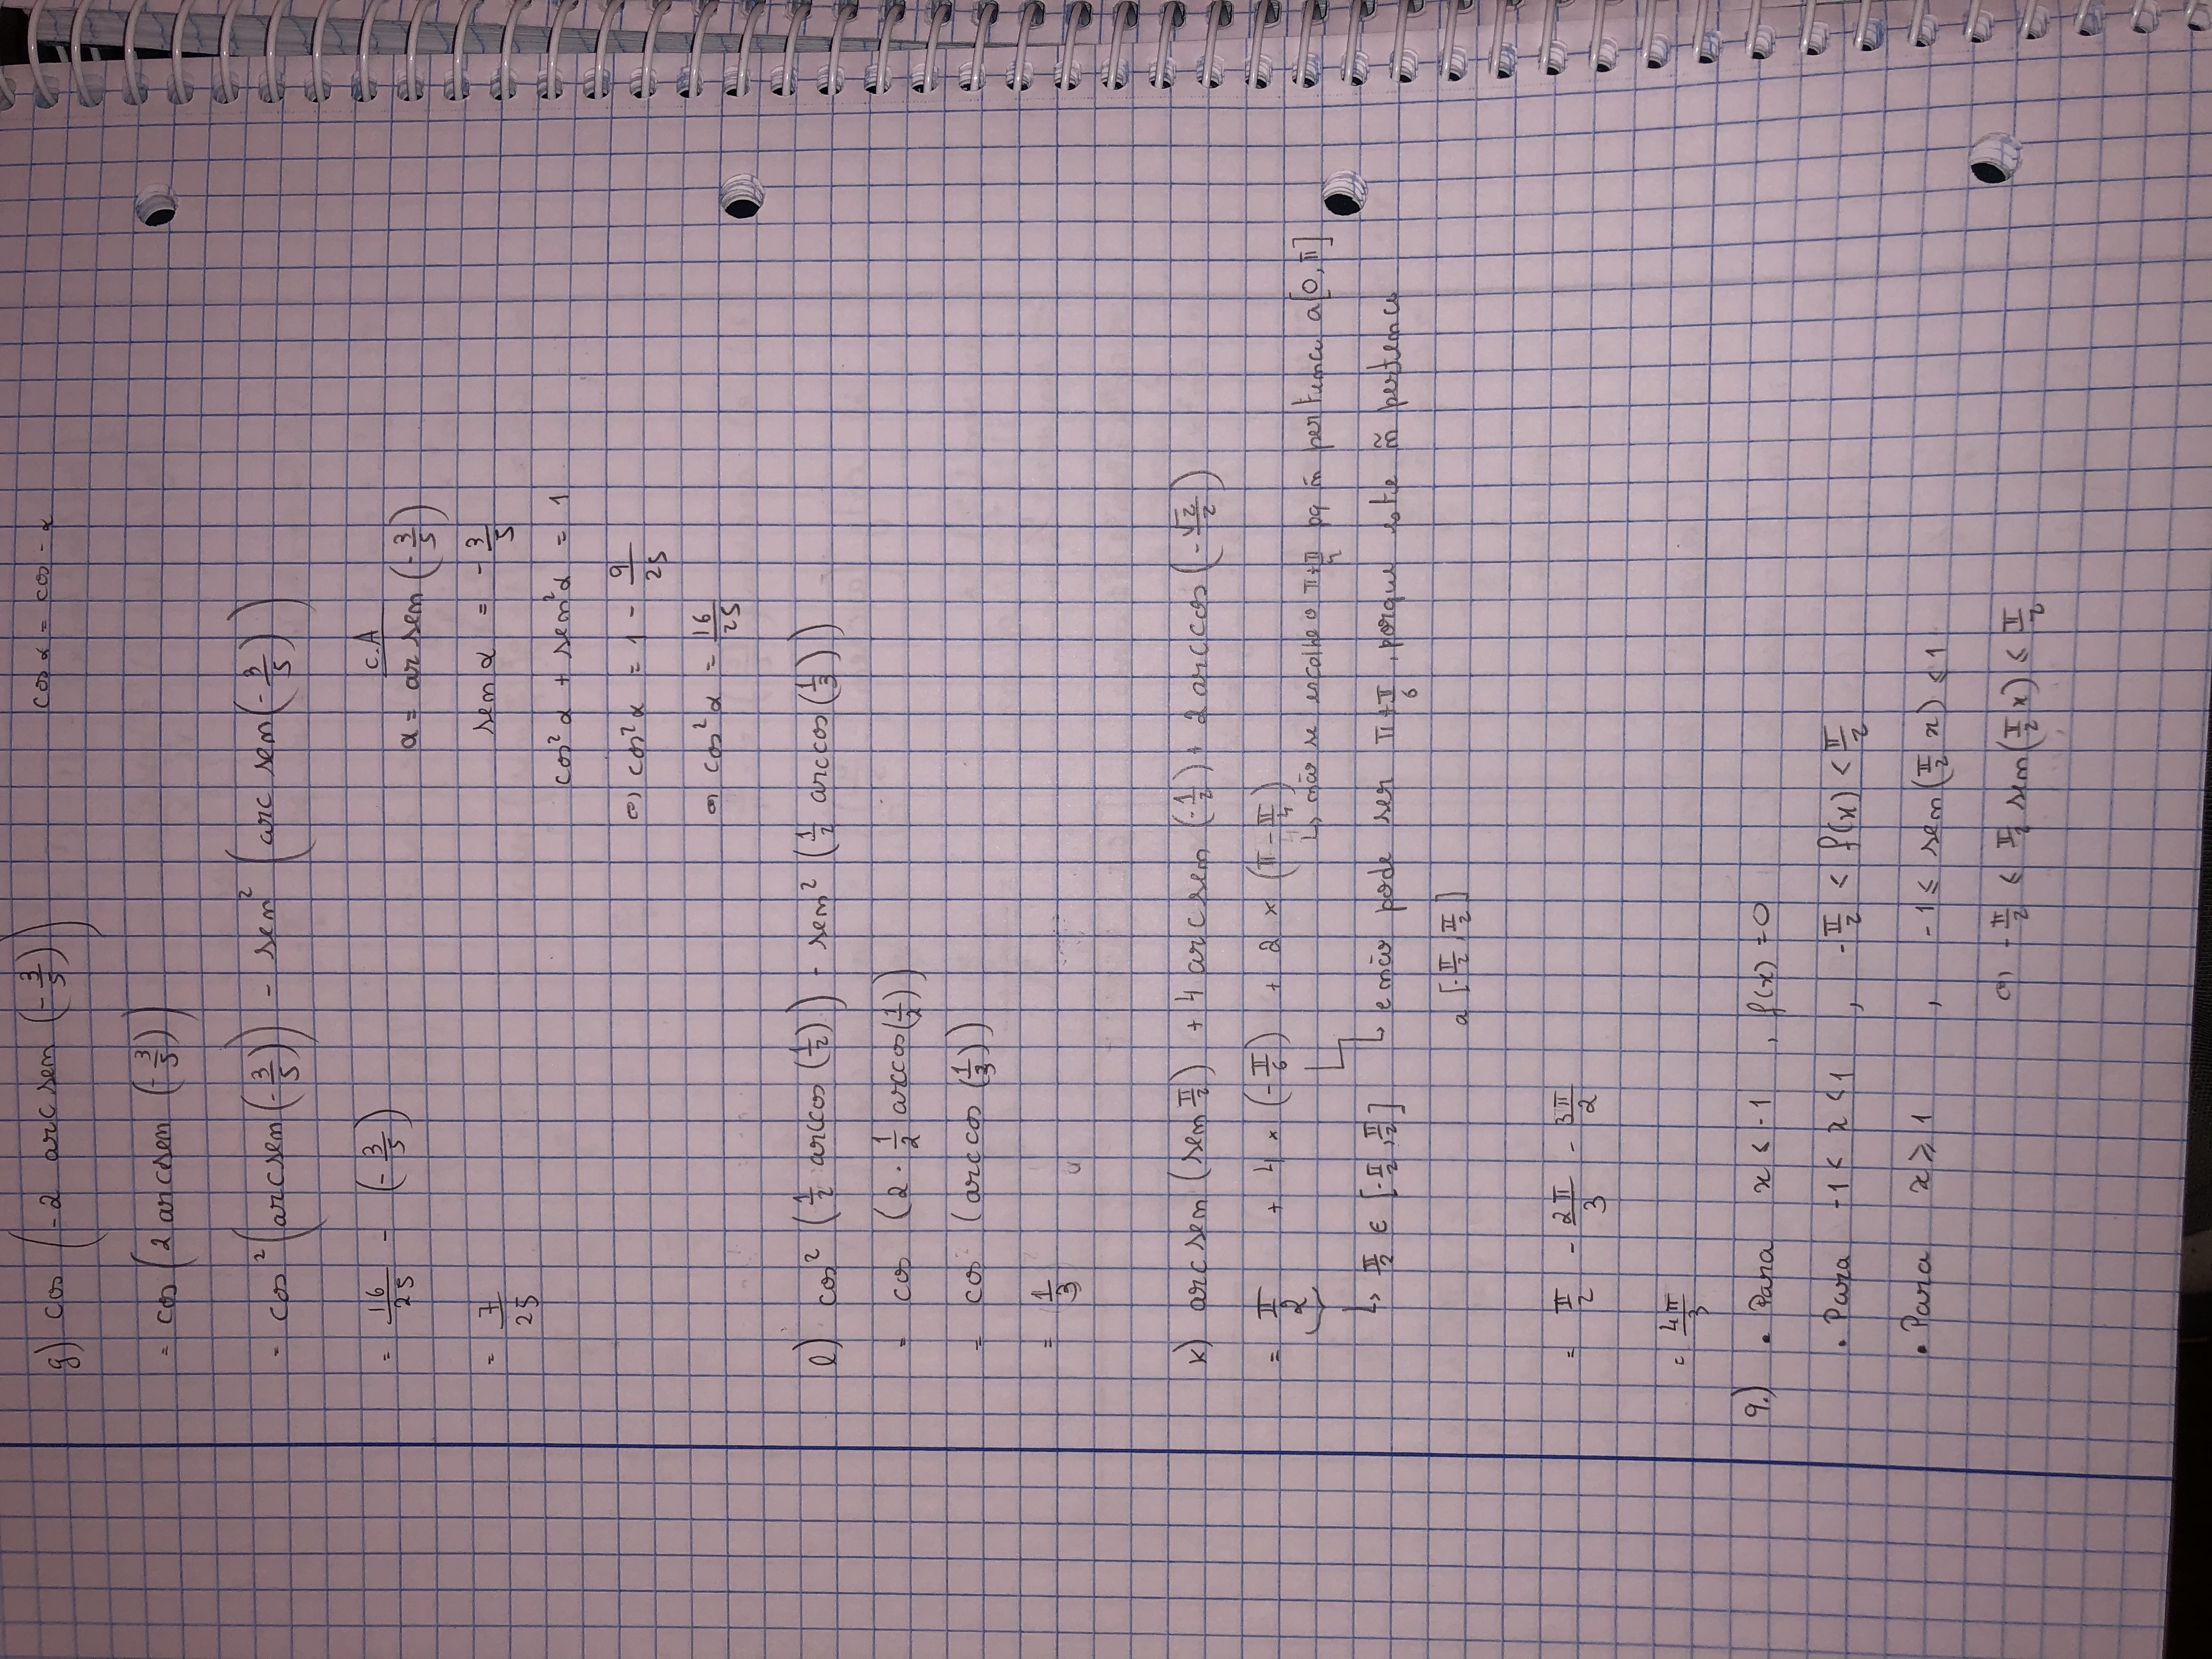 g) cos (-2 arcsen (-3/5)) cos α = cos -α
= cos (2 arcsen (-3/5))
= cos² (arcsen (-3/5)) - sen² (arcsen (-3/5))
= 16/25 - (-3/5)
= 7/25
C.A
α = arsen (-3/5)
sen α = -3/5
cos² α + sen² α = 1
⇔ cos² α = 1 - 9/25
⇔ cos² α = 16/25
l) cos² (1/2 arccos (1/2)) - sen² (1/2 arccos (1/3))
= cos (2 · 1/2 arccos (1/2))
= cos (arccos (1/3))
= 1/3
k) arcsen (sen π/2) + 4 arcsen (-1/2) + 2 arccos (-√2/2)
= π/2 + 4 × (-π/6) + 2 × (π - π/4)
↳ não se escolhe o π+π/4 pq ñ pertence a [0, π]
↳ π/2 ∈ [-π/2, π/2] ↳ e não pode ser π+π/6, porque este ñ pertence
a [-π/2, π/2]
= π/2 - 2π/3 - 3π/2
= 4π/3
9.) • Para x ≤ -1 , f(x) = 0
• Para -1 < x < 1 , -π/2 < f(x) < π/2
• Para x ≥ 1 , -1 ≤ sen (π/2 x) ≤ 1
⇔ -π/2 ≤ π/2 sen (π/2 x) ≤ π/2